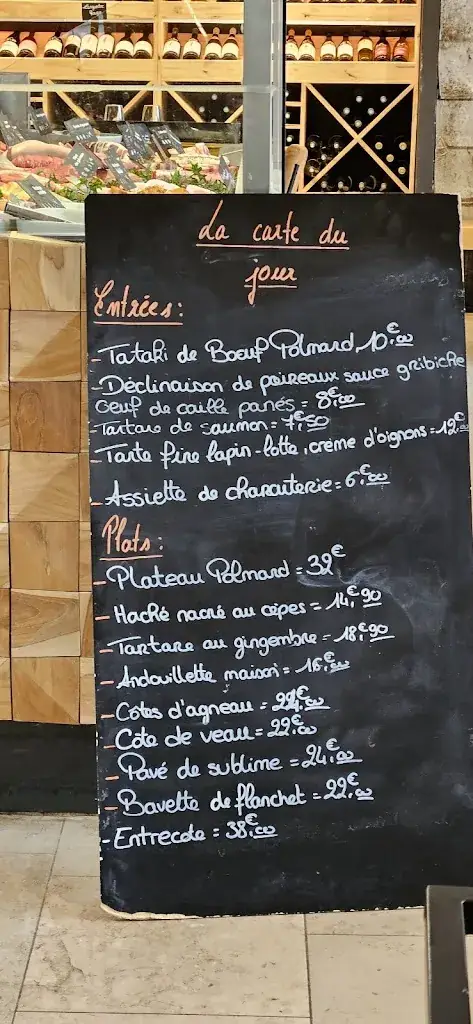 La carte du
jour
Entrées:
- Tataki de Boeuf Polmard, 10,€00
- Déclinaison de poireaux sauce gribiche
oeuf de caille panés = 8,€00
- Tartare de saumon = 7€,50
- Tarte fine lapin-lotte, crème d'oignons = 12,€00
- Assiette de charcuterie = 6,€00
Plats:
- Plateau Polmard = 32€
- Haché nacré au cèpes = 14,€90
- Tartare au gingembre = 18,€90
- Andouillette maison = 16,€00
- Côtes d'agneau = 22,€00
- Côte de veau = 22,€00
- Pavé de sublime = 24,€00
- Bavette de flanchet = 22,€00
- Entrecote = 38,€00